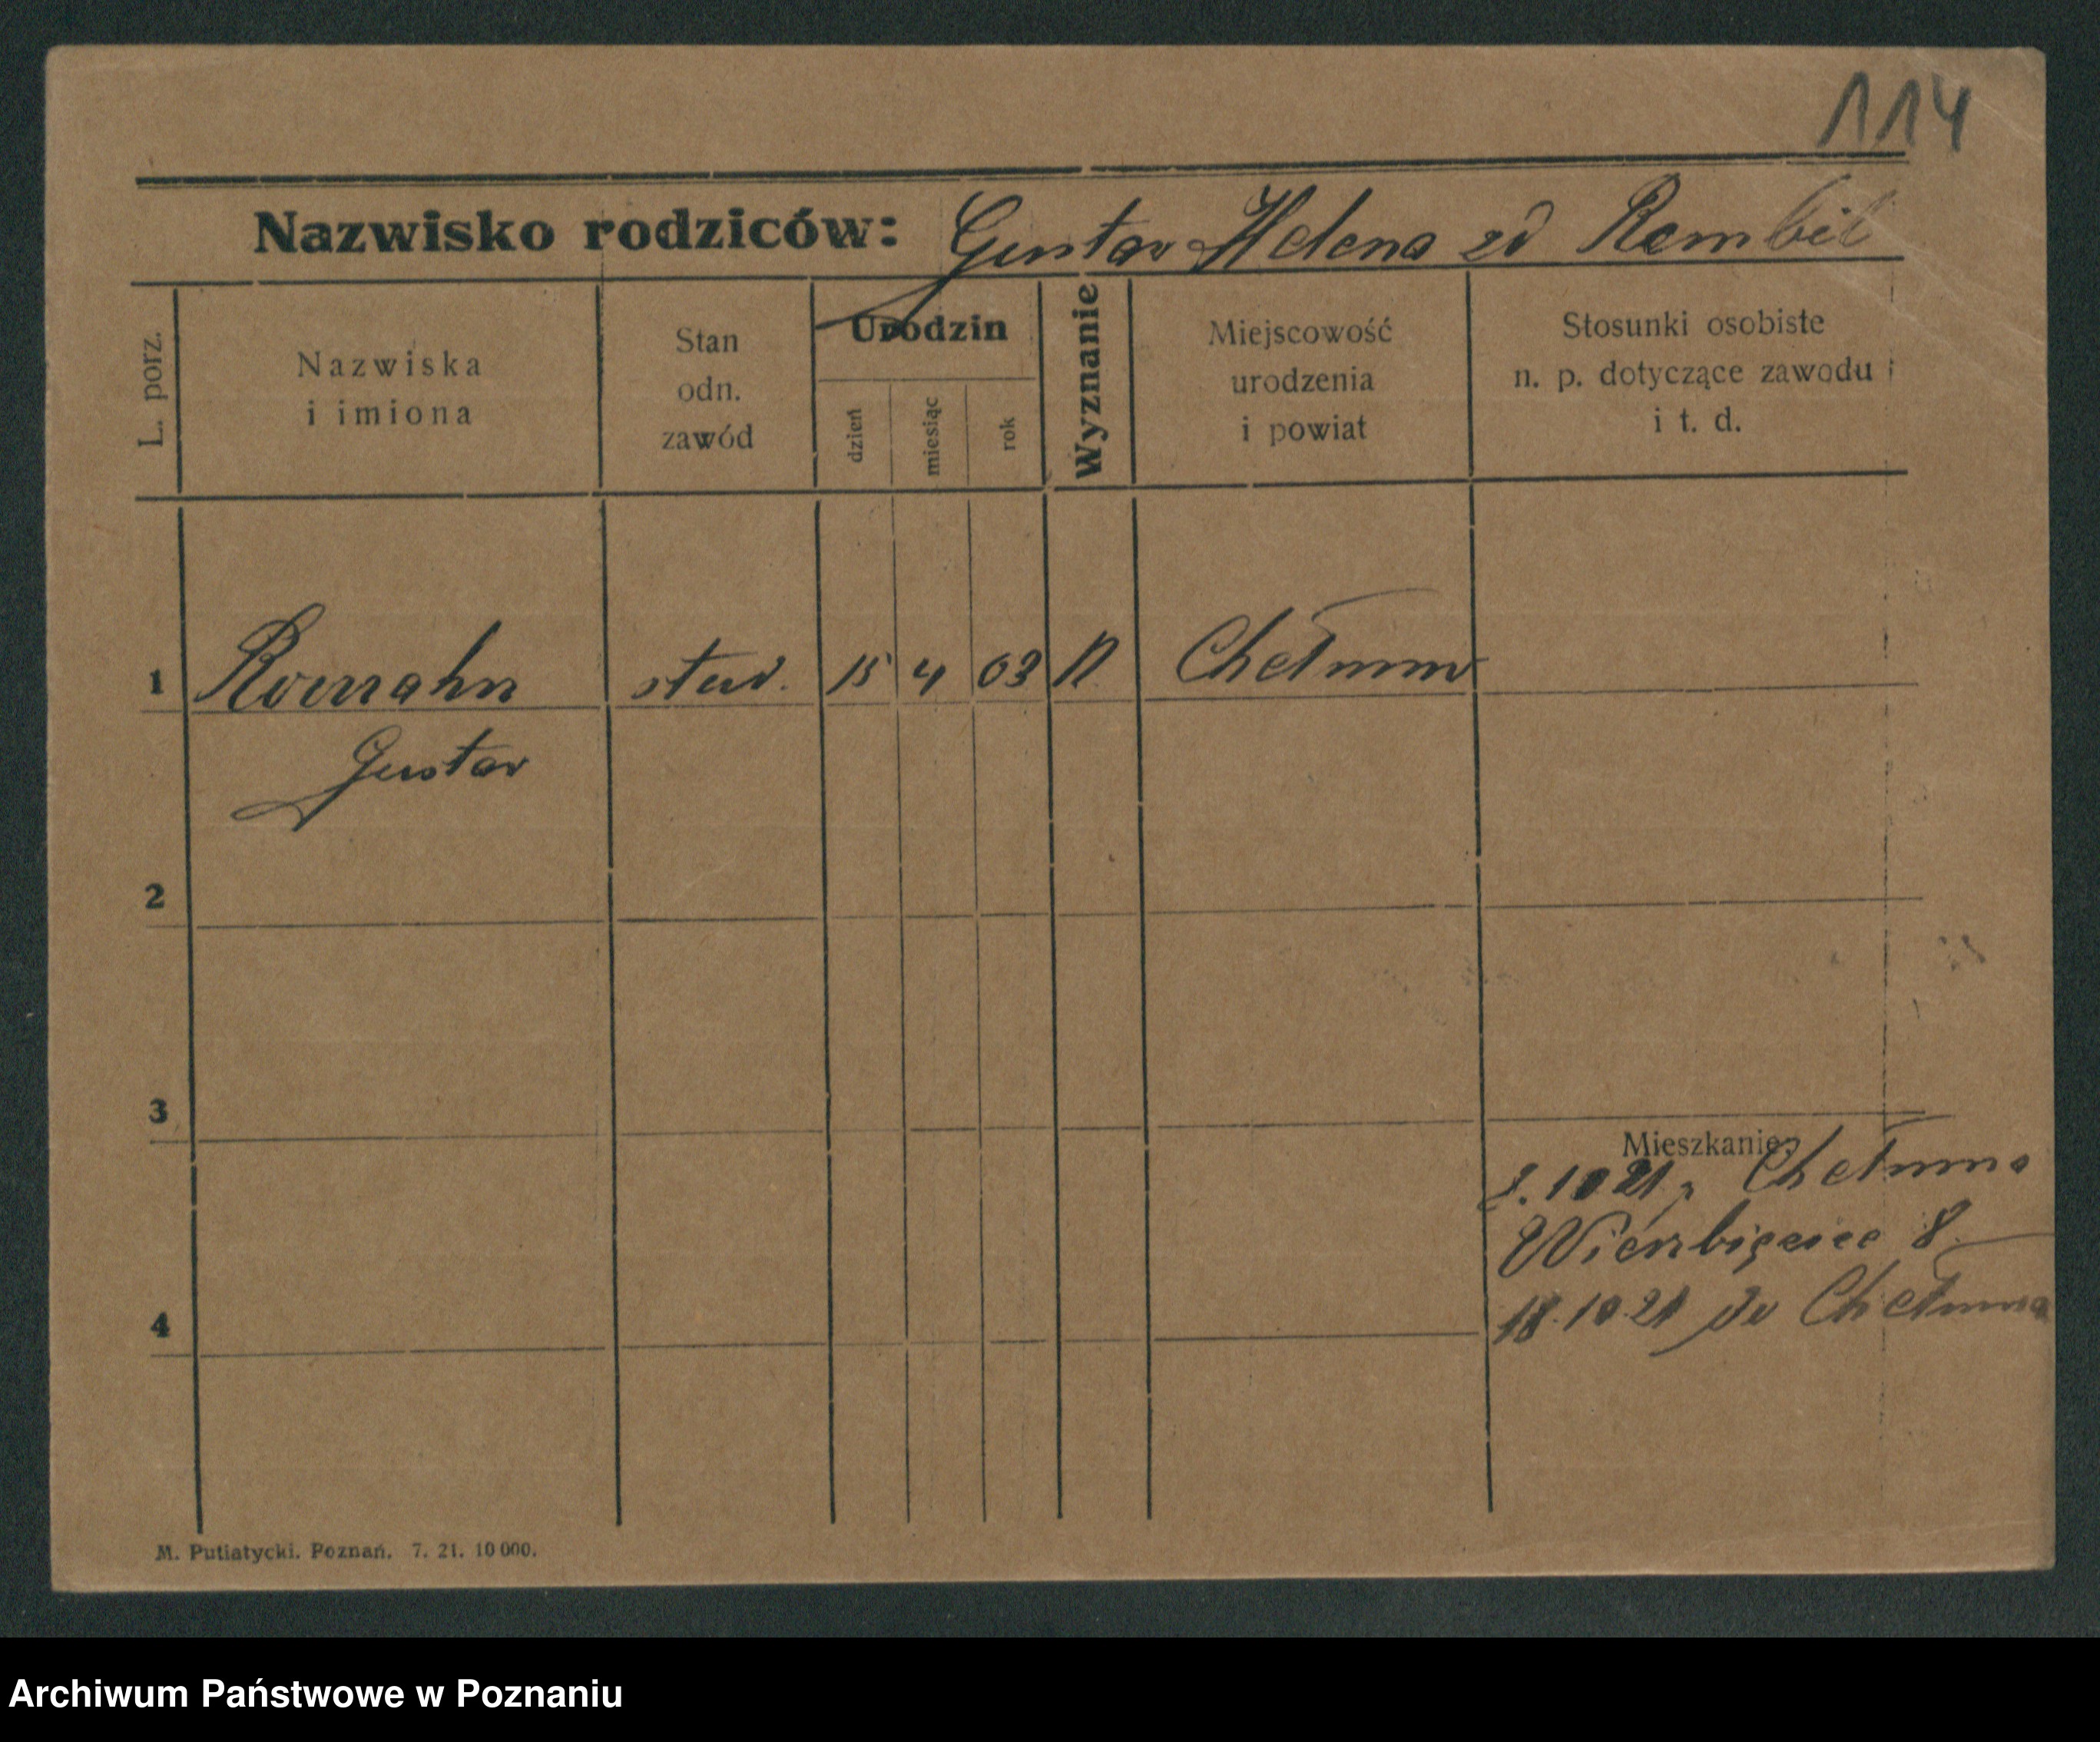 114
Nazwisko rodziców: Gustav Helena zd Rembil
L. porz.
Nazwiska
i imiona
Stan
odn.
zawód
Urodzin
dzień
miesiąc
rok
Wyznanie
Miejscowość
urodzenia
i powiat
Stosunki osobiste
n. p. dotyczące zawodu
i t. d.
1 stud. 15 4 03 Chełmno
Gustav
2
3
Mieszkanie:
10 21 Chełmno
Wierzbięcice 8
4
18.10.21 do Chełmna
M. Putiatycki. Poznań. 7. 21. 10 000.
Archiwum Państwowe w Poznaniu